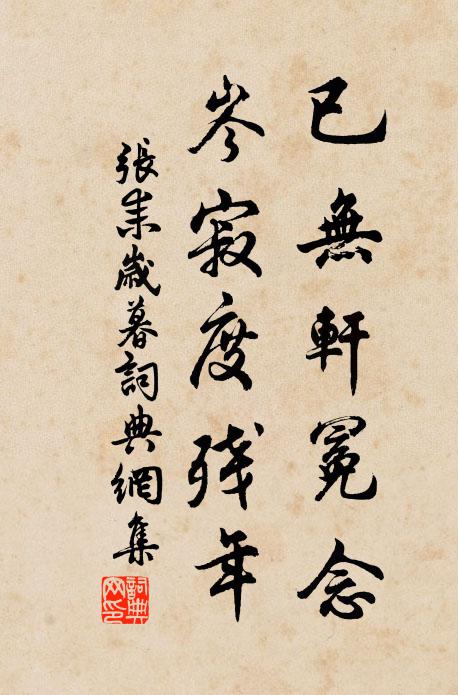 已無軒冕念
岑寂度残年
張耒歲暮詞典網集
詞典网印